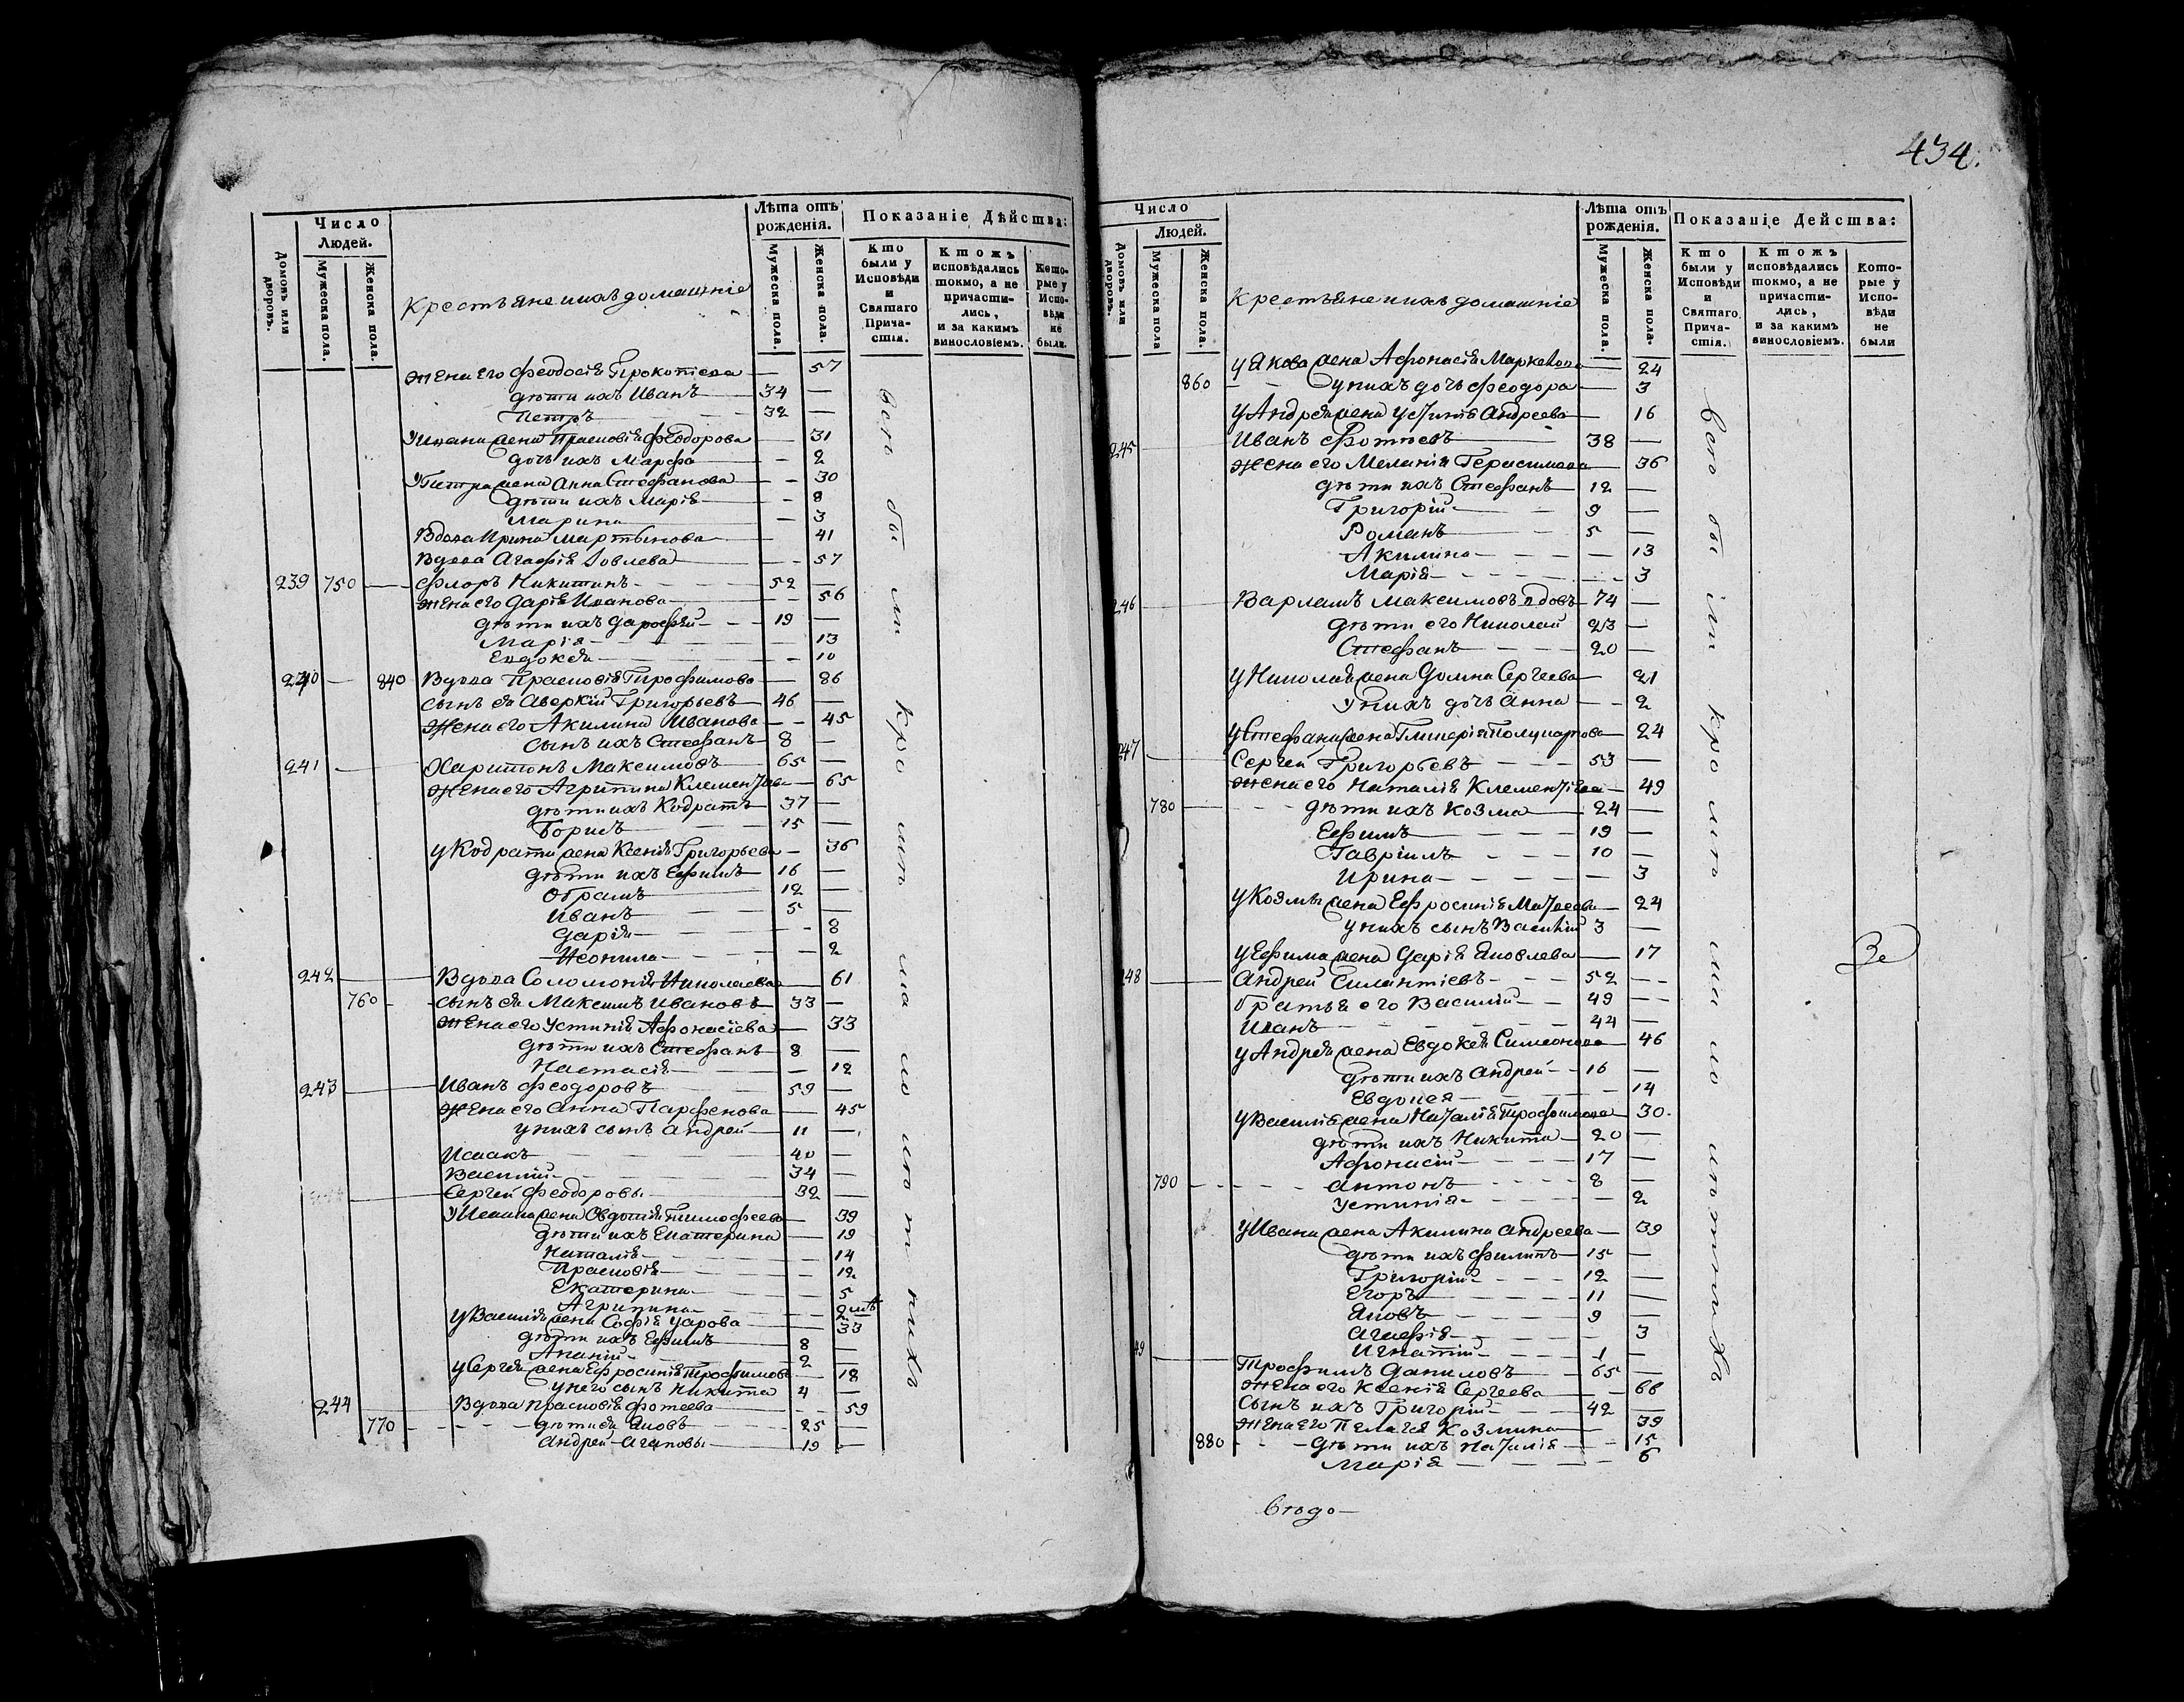 434.
Число
Людей.
Домовъ или дворовъ.
Мужеска пола.
Женска пола.
Крестьяне и ихъ домашніе
Лѣта отъ рожденія.
Мужеска пола.
Женска пола.
Показаніе Дѣйства:
Кто были у Исповѣди и Святаго Причастія.
Ктожъ исповѣдались токмо, а не причастились, и за какимъ винословіемъ.
Которые у Исповѣди не были.
Жена его Феодосія Прокопіева — 57
дѣти ихъ Иванъ 34 —
Петръ 32 —
У Ивана жена Прасковія Феодорова — 31
дочь ихъ Марфа — 2
У Петра жена Анна Стефанова — 30
дѣти ихъ Марія — 8
Марина — 3
Вдова Ирина Мартынова — 41
Вдова Агафія Іовлева — 57
239 750 Флоръ Никитинъ 52 —
Жена его Дарія Иванова — 56
дѣти ихъ Дарофей 19 —
Марія — 13
Евдокея — 10
240 — 840 Вдова Прасковія Трофимова — 86
сынъ ея Аверкій Григорьевъ 46 —
Жена его Акилина Иванова — 45
сынъ ихъ Стефанъ 8 —
241 Харитонъ Максимовъ 65 —
Жена его Агрипина Клементіева — 65
дѣти ихъ Кодратъ 37 —
Борисъ 15 —
у Кодрата жена Ксенія Григорьева — 36
дѣти ихъ Ефимъ 16 —
Обрамъ 12 —
Иванъ 5 —
Дарія — 8
Неонила — 2
242 Вдова Соломонія Николаева — 61
760 сынъ ея Максимъ Ивановъ 33 —
Жена его Устинія Афонасіева — 33
дѣти ихъ Стефанъ 8 —
Настасія — 12
243 Иванъ Феодоровъ 59 —
Жена его Анна Парфенова — 45
у нихъ сынъ Андрей 11 —
Исаакъ 40 —
Василій 34 —
Сергей Феодоровы 32 —
У Исаака жена Овдотия Тимофеева — 39
дѣти ихъ Екатерина — 19
Наталія — 14
Прасковія — 12
Екатерина — 5
Агрипина — 2
у Василія жена Софія Уарова — 33
дѣти ихъ Ефимъ 8 —
Ананій 2 —
у Сергея жена Ефросинія Трофимова — 18
у него сынъ Никита 4 —
244 Вдова Прасковія Фотеева — 59
770 дѣти ея Яковъ 25 —
Андрей Агаповы 19 —
Число
Людей.
Домовъ или дворовъ.
Мужеска пола
Женска пола.
Крестьяне и ихъ домашніе
Лѣта отъ рожденія.
Мужеска пола.
Женска пола.
Показаніе Действа:
Кто были у Исповѣди и Святаго Причастія.
Ктожъ исповѣдались токмо, а не причастились, и за какимъ винословіемъ.
Которые у Исповѣди не были
у Якова жена Афонасія Маркелова — 24
860 у нихъ дочь Феодора — 3
у Андрея жена Устинія Андреева — 16
245 Иванъ Фотіевъ 38 —
Жена его Меланія Герасимова — 36
дѣти ихъ Стефанъ 12 —
Григорій 9 —
Романъ 5 —
Акилина — 13
Марія — 3
246 Варламъ Максимовъ вдовъ 74 —
дѣти его Николай 23 —
Стефанъ 20 —
у Николая жена Домна Сергеева — 21
У нихъ дочь Анна — 2
у Стефана жена Гликерія Полукарпова — 24
247 Сергей Григорьевъ 53 —
Жена его Наталія Клементіева — 49
780 дѣти ихъ Козма 24 —
Ефимъ 19 —
Гавріилъ 10 —
Ирина — 3
у Козмы жена Ефросинія Матвеева — 24
у нихъ сынъ Василій 3 —
у Ефима жена Дарія Яковлева — 17
48 Андрей Силантіевъ 52 —
братья его Василій 49 —
Иванъ 44 —
у Андрея жена Евдокея Симеонова — 46
дѣти ихъ Андрей 16 —
Евдокея — 14
у Василія жена Наталія Трофимова — 30
дѣти ихъ Никита 20 —
Афонасій 17 —
790 Антонъ 8 —
Устинія — 2
у Ивана жена Акилина Андреева — 39
дѣти ихъ Филипъ 15 —
Григорій 12 —
Егоръ 11 —
Яковъ 9 —
Агафія — 3
Игнатій 1 —
49 Трофимъ Даниловъ 65 —
Жена его Ксенія Сергеева — 66
Сынъ ихъ Григорій 42 —
Жена его Пелагея Козмина — 39
880 дѣти ихъ Наталія — 15
Марія — 6